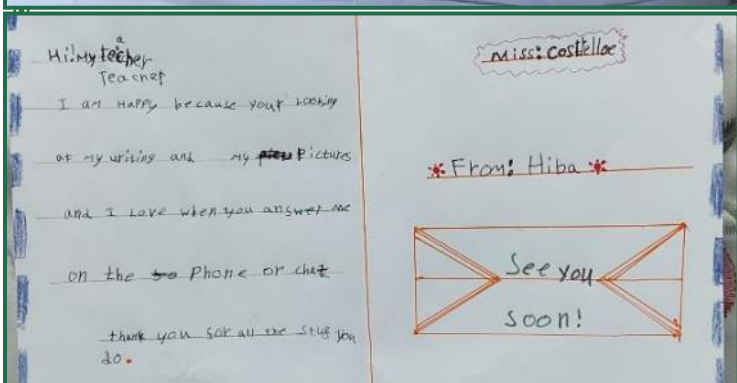 Hi! My teacher
Teacher
I am Happy because your Looking
at my writing and my Pictures
and I Love when you answer me
on the Phone or chat
thank you for all the stuf you
do.
Miss: Costelloe
From: Hiba
See you
Soon!